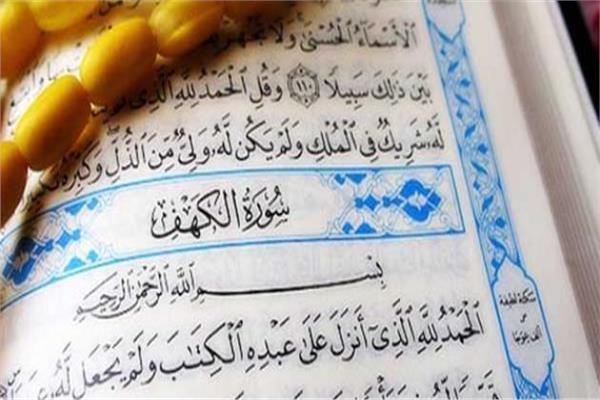 ٱلْأَسْمَآءُ ٱلْحُسْنَىٰ وَلَا تَجْهَرْ
بَيْنَ ذَٰلِكَ سَبِيلًا ﴿١١٠﴾ وَقُلِ ٱلْحَمْدُ لِلَّهِ ٱلَّذِى
لَّهُۥ شَرِيكٌ فِى ٱلْمُلْكِ وَلَمْ يَكُن لَّهُۥ وَلِىٌّ مِّنَ ٱلذُّلِّ وَكَبِّرْهُ
سُورَةُ الكَهْفِ
بِسْمِ ٱللَّهِ ٱلرَّحْمَٰنِ ٱلرَّحِيمِ
ٱلْحَمْدُ لِلَّهِ ٱلَّذِىٓ أَنزَلَ عَلَىٰ عَبْدِهِ ٱلْكِتَٰبَ وَلَمْ يَجْعَل لَّهُۥ
سكتة لطيفة